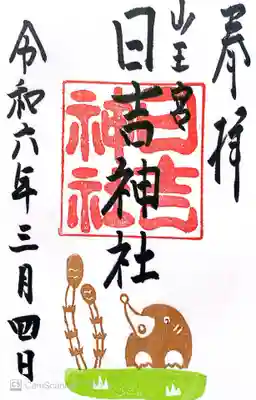 奉拝
山王宮
日吉神社
日吉
神社
令和六年三月四日
CS CamScanner